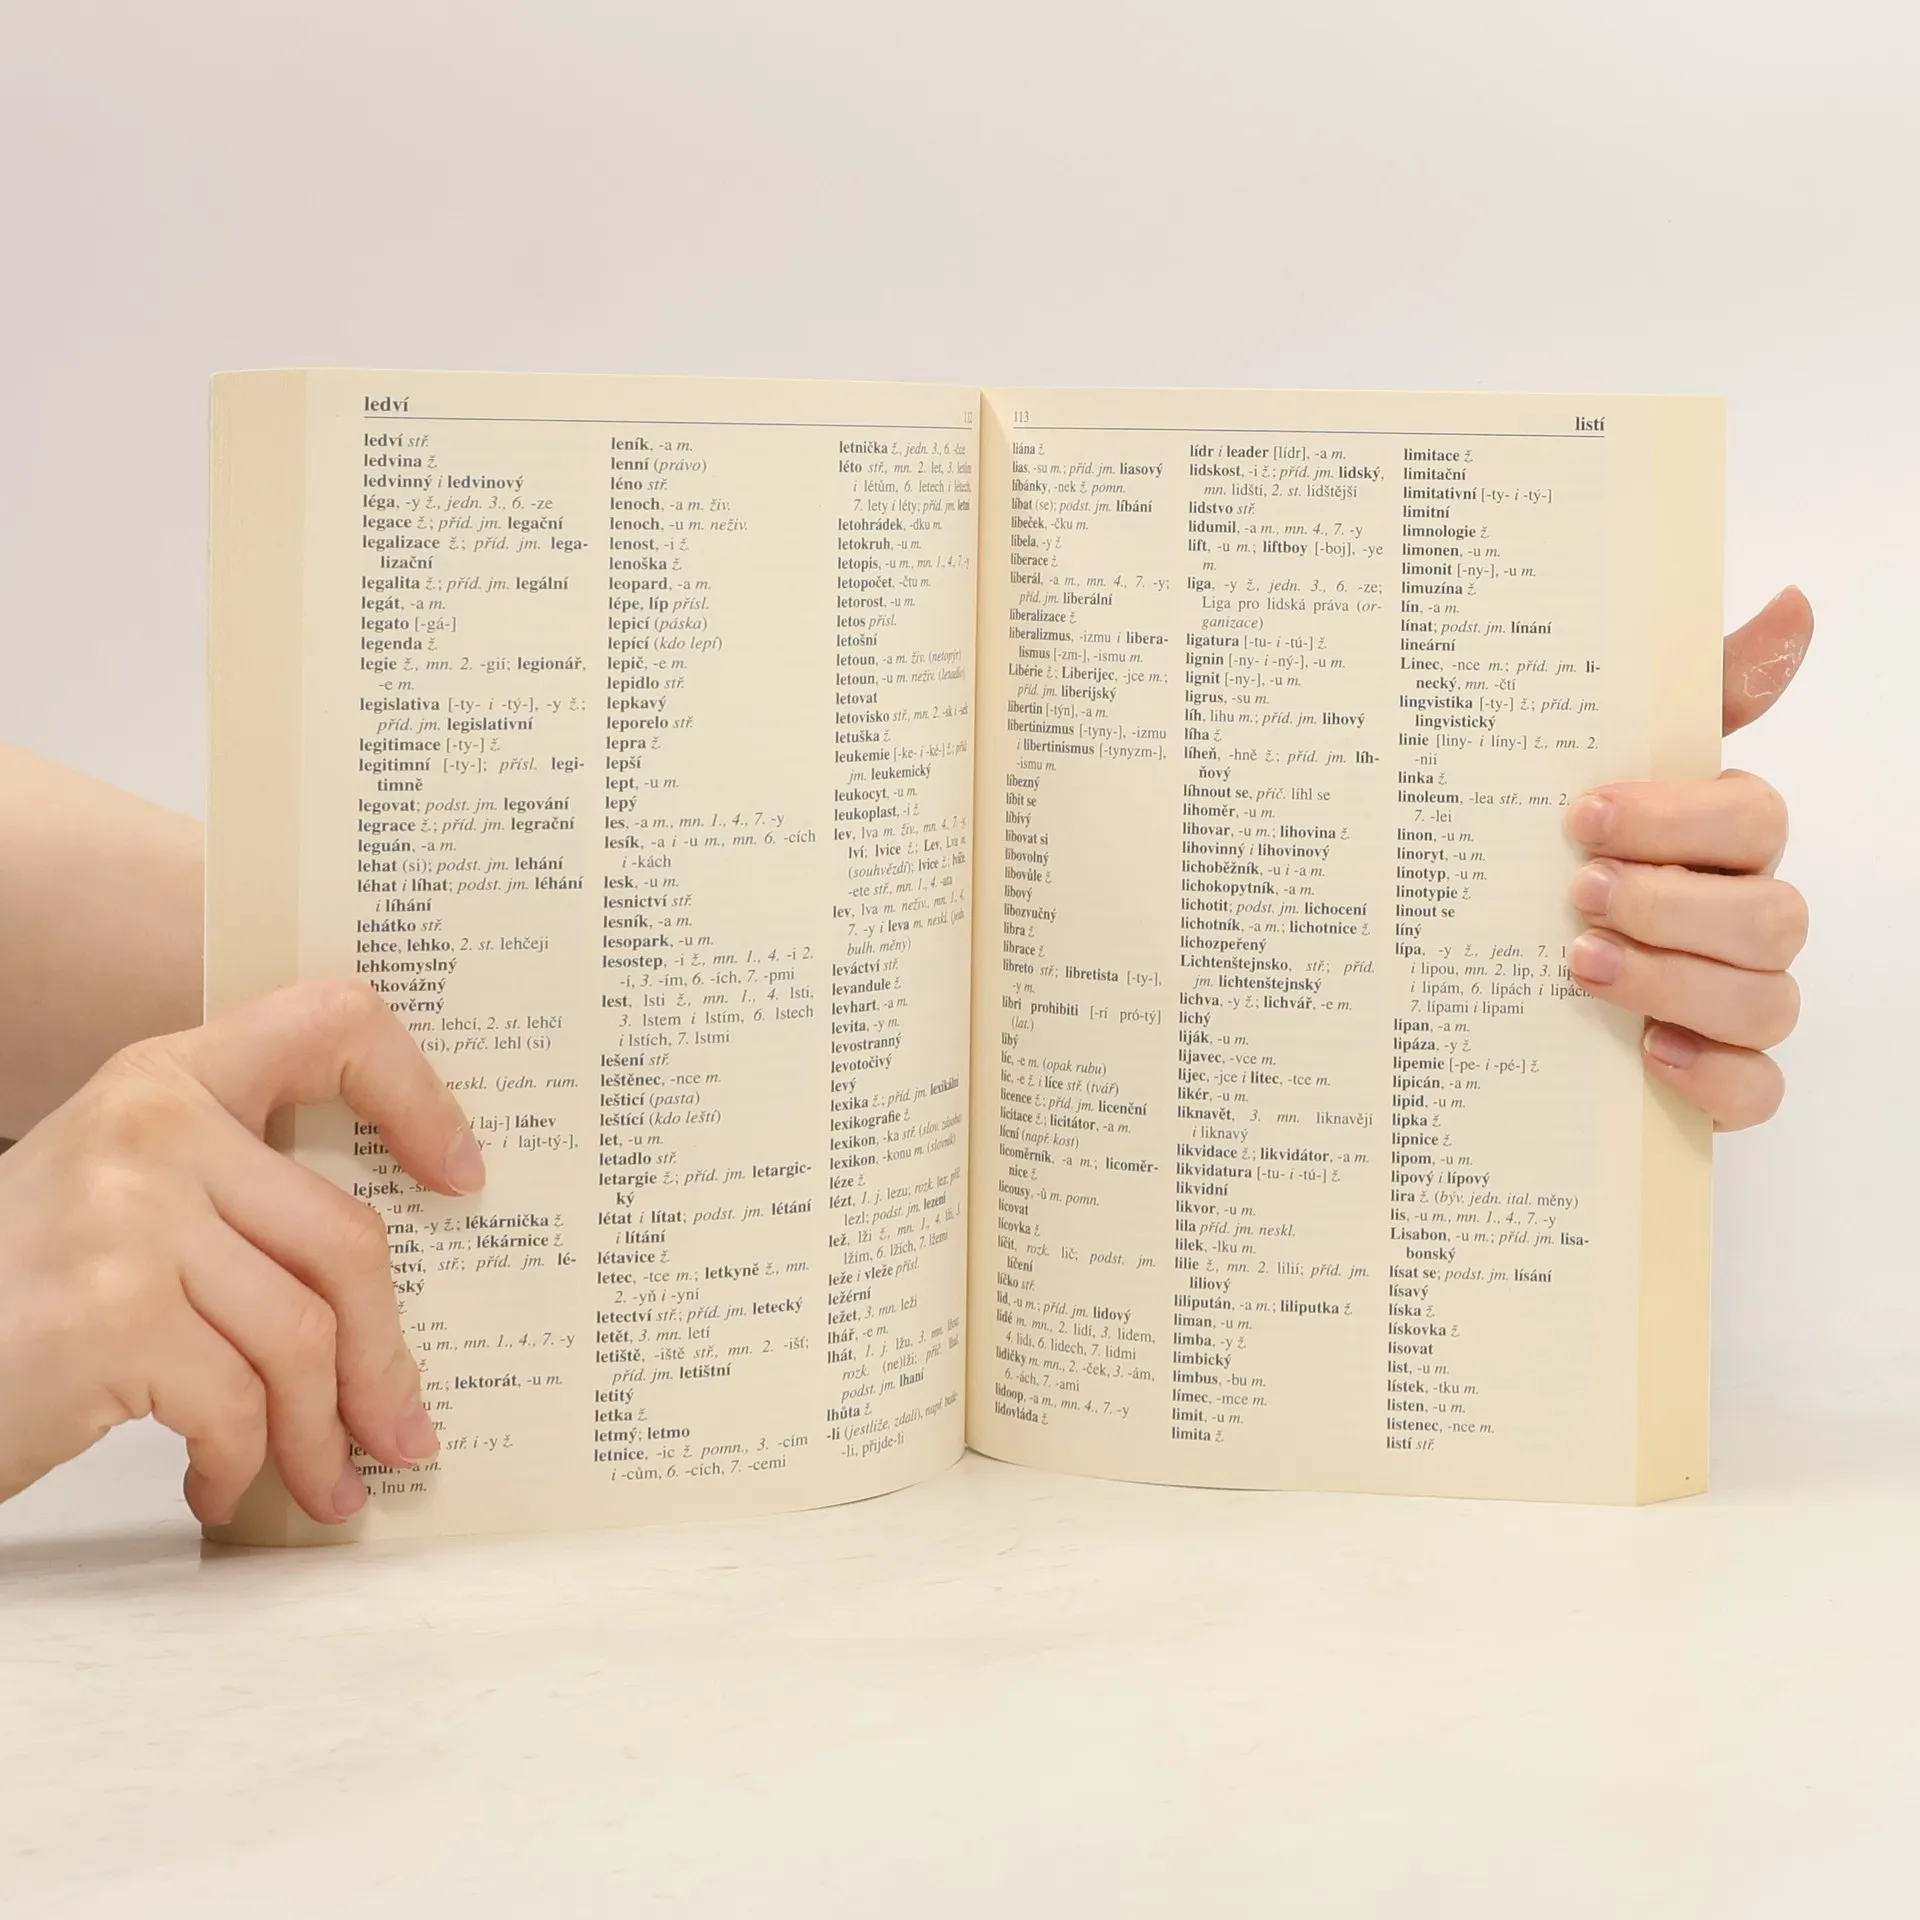 ledví
ledví stř.
ledvina ž.
ledvinný i ledvinový
léga, -y ž., jedn. 3., 6. -ze
legace ž.; příd. jm. legační
legalizace ž.; příd. jm. lega-
lizační
legalita ž.; příd. jm. legální
legát, -a m.
legato [-gá-]
legenda ž.
legie ž., mn. 2. -gií; legionář,
-e m.
legislativa [-ty- i -tý-], -y ž.;
příd. jm. legislativní
legitimace [-ty-] ž.
legitimní [-ty-]; přísl. legi-
timně
legovat; podst. jm. legování
legrace ž.; příd. jm. legrační
leguán, -a m.
lehat (si); podst. jm. lehání
léhat i líhat; podst. jm. léhání
i líhání
lehátko stř.
lehce, lehko, 2. st. lehčeji
lehkomyslný
mn. lehcí, 2. st. lehčí
(si), příč. lehl (si)
neskl. (jedn. rum.
i laj-] láhev
i lajt-tý-],
-u m.
lejsek,
-u m.
-y ž.; lékárnička ž.
-a m.; lékárnice ž.
stř.; příd. jm. lé-
ž.
-u m.
-u m., mn. 1., 4., 7. -y
ž.
m.; lektorát, -u m.
m.
stř. i -y ž.
lnu m.
leník, -a m.
lenní (právo)
léno stř.
lenoch, -a m. živ.
lenoch, -u m. neživ.
lenost, -i ž.
lenoška ž.
leopard, -a m.
lépe, líp přísl.
lepicí (páska)
lepící (kdo lepí)
lepič, -e m.
lepidlo stř.
lepkavý
leporelo stř.
lepra ž.
lepší
lept, -u m.
lepý
les, -a m., mn. 1., 4., 7. -y
lesík, -a i -u m., mn. 6. -cích
i -kách
lesk, -u m.
lesnictví stř.
lesník, -a m.
lesopark, -u m.
lesostep, -i ž., mn. 1., 4. -i 2.
-í, 3. -ím, 6. -ích, 7. -pmi
lest, lsti ž., mn. 1., 4. lsti,
3. lstem i lstím, 6. lstech
i lstích, 7. lstmi
lešení stř.
leštěnec, -nce m.
lešticí (pasta)
leštící (kdo leští)
let, -u m.
letadlo stř.
letargie ž.; příd. jm. letargic-
ký
létat i lítat; podst. jm. létání
i lítání
létavice ž.
letec, -tce m.; letkyně ž., mn.
2. -yň i -yní
letectví stř.; příd. jm. letecký
letět, 3. mn. letí
letiště, -iště stř., mn. 2. -išť;
příd. jm. letištní
letitý
letka ž.
letmý; letmo
letnice, -ic ž. pomn., 3. -cím
i -cům, 6. -cích, 7. -cemi
letnička ž., jedn. 3., 6. -čce
léto stř., mn. 2. let, 3. letům
i létům, 6. letech i létech,
7. lety i léty; příd. jm. letní
letohrádek, -dku m.
letokruh, -u m.
letopis, -u m., mn. 1., 4., 7. -y
letopočet, -čtu m.
letorost, -u m.
letos přísl.
letošní
letoun, -a m. živ. (netopýr)
letoun, -u m. neživ. (letadlo)
letovat
letovisko stř., mn. 2. -sk i -sek
letuška ž.
leukemie [-ke- i -ké-] ž.; příd.
jm. leukemický
leukocyt, -u m.
leukoplast, -i ž.
lev, lva m. živ., mn. 4., 7. -y
lví; lvice ž.; Lev, Lva m.
(souhvězdí); lvice ž.; lvíče,
-ete stř., mn. 1., 4. -ata
lev, lva m. neživ., mn. 1., 4.,
7. -y i leva m. neskl. (jedn.
bulh. měny)
leváctví stř.
levandule ž.
levhart, -a m.
levita, -y m.
levostranný
levotočivý
levý
lexika ž.; příd. jm. lexikální
lexikografie ž.
lexikon, -ka stř. (slov. zásoba)
lexikon, -konu m. (slovník)
léze ž.
lézt, 1. j. lezu; rozk. lez; příč.
lezl; podst. jm. lezení
lež, lži ž., mn. 1., 4. lži, 3.
lžím, 6. lžích, 7. lžemi
leže i vleže přísl.
ležérní
ležet, 3. mn. leží
lhář, -e m.
lhát, 1. j. lžu, 3. mn. lžou;
rozk. (ne)lži; příč. lhal;
podst. jm. lhaní
lhůta ž.
-li (jestliže, zdali), např. bude-
-li, přijde-li
113
listí
liána ž.
lias, -su m.; příd. jm. liasový
líbánky, -nek ž. pomn.
líbat (se); podst. jm. líbání
libeček, -čku m.
libela, -y ž.
liberace ž.
liberál, -a m., mn. 4., 7. -y;
příd. jm. liberální
liberalizace ž.
liberalizmus, -izmu i libera-
lismus [-zm-], -ismu m.
Libérie ž.; Liberijec, -jce m.;
příd. jm. liberijský
libertin [-týn], -a m.
libertinizmus [-tyny-], -izmu
i libertinismus [-tynyzm-],
-ismu m.
líbezný
líbit se
líbivý
libovat si
libovolný
libovůle ž.
libový
libozvučný
libra ž.
librace ž.
libreto stř.; libretista [-ty-],
-y m.
libri prohibiti [-rí pró-tý]
(lat.)
libý
líc, -e m. (opak rubu)
líc, -e ž. i líce stř. (tvář)
licence ž.; příd. jm. licenční
licitace ž.; licitátor, -a m.
lícní (např. kost)
licoměrník, -a m.; licoměr-
nice ž.
licousy, -ů m. pomn.
lícovat
lícovka ž.
líčit, rozk. lič; podst. jm.
líčení
líčko stř.
lid, -u m.; příd. jm. lidový
lidé m. mn., 2. lidí, 3. lidem,
4. lidi, 6. lidech, 7. lidmi
lidičky m. mn., 2. -ček, 3. -ám,
6. -ách, 7. -ami
lidoop, -a m., mn. 4., 7. -y
lidovláda ž.
lídr i leader [lídr], -a m.
lidskost, -i ž.; příd. jm. lidský,
mn. lidští, 2. st. lidštější
lidstvo stř.
lidumil, -a m., mn. 4., 7. -y
lift, -u m.; liftboy [-boj], -ye
m.
liga, -y ž., jedn. 3., 6. -ze;
Liga pro lidská práva (or-
ganizace)
ligatura [-tu- i -tú-] ž.
lignin [-ny- i -ný-], -u m.
lignit [-ny-], -u m.
ligrus, -su m.
líh, lihu m.; příd. jm. lihový
líha ž.
líheň, -hně ž.; příd. jm. líh-
ňový
líhnout se, příč. líhl se
lihoměr, -u m.
lihovar, -u m.; lihovina ž.
lihovinný i lihovinový
lichoběžník, -u i -a m.
lichokopytník, -a m.
lichotit; podst. jm. lichocení
lichotník, -a m.; lichotnice ž.
lichozpeřený
Lichtenštejnsko, stř.; příd.
jm. lichtenštejnský
lichva, -y ž.; lichvář, -e m.
lichý
liják, -u m.
lijavec, -vce m.
lijec, -jce i litec, -tce m.
likér, -u m.
liknavět, 3. mn. liknavějí
i liknavý
likvidace ž.; likvidátor, -a m.
likvidatura [-tu- i -tú-] ž.
likvidní
likvor, -u m.
lila příd. jm. neskl.
lilek, -lku m.
lilie ž., mn. 2. lilií; příd. jm.
liliový
liliputan, -a m.; liliputka ž.
liman, -u m.
limba, -y ž.
limbický
limbus, -bu m.
límec, -mce m.
limit, -u m.
limita ž.
limitace ž.
limitační
limitativní [-ty- i -tý-]
limitní
limnologie ž.
limonen, -u m.
limonit [-ny-], -u m.
limuzína ž.
lín, -a m.
línat; podst. jm. línání
lineární
Linec, -nce m.; příd. jm. li-
necký, mn. -čtí
lingvistika [-ty-] ž.; příd. jm.
lingvistický
linie [liny- i líny-] ž., mn. 2.
-nií
linka ž.
linoleum, -lea stř., mn. 2.
7. -lei
linon, -u m.
linoryt, -u m.
linotyp, -u m.
linotypie ž.
linout se
líný
lípa, -y ž., jedn. 7.
i lipou, mn. 2. lip, 3.
i lipám, 6. lípách i lipách,
7. lípami i lipami
lipan, -a m.
lipáza, -y ž.
lipemie [-pe- i -pé-] ž.
lipicán, -a m.
lipid, -u m.
lipka ž.
lipnice ž.
lipom, -u m.
lipový i lípový
lira ž. (býv. jedn. ital. měny)
lis, -u m., mn. 1., 4., 7. -y
Lisabon, -u m.; příd. jm. lisa-
bonský
lísat se; podst. jm. lísání
lísavý
líska ž.
lískovka ž.
lisovat
list, -u m.
lístek, -tku m.
listen, -u m.
listenec, -nce m.
listí stř.